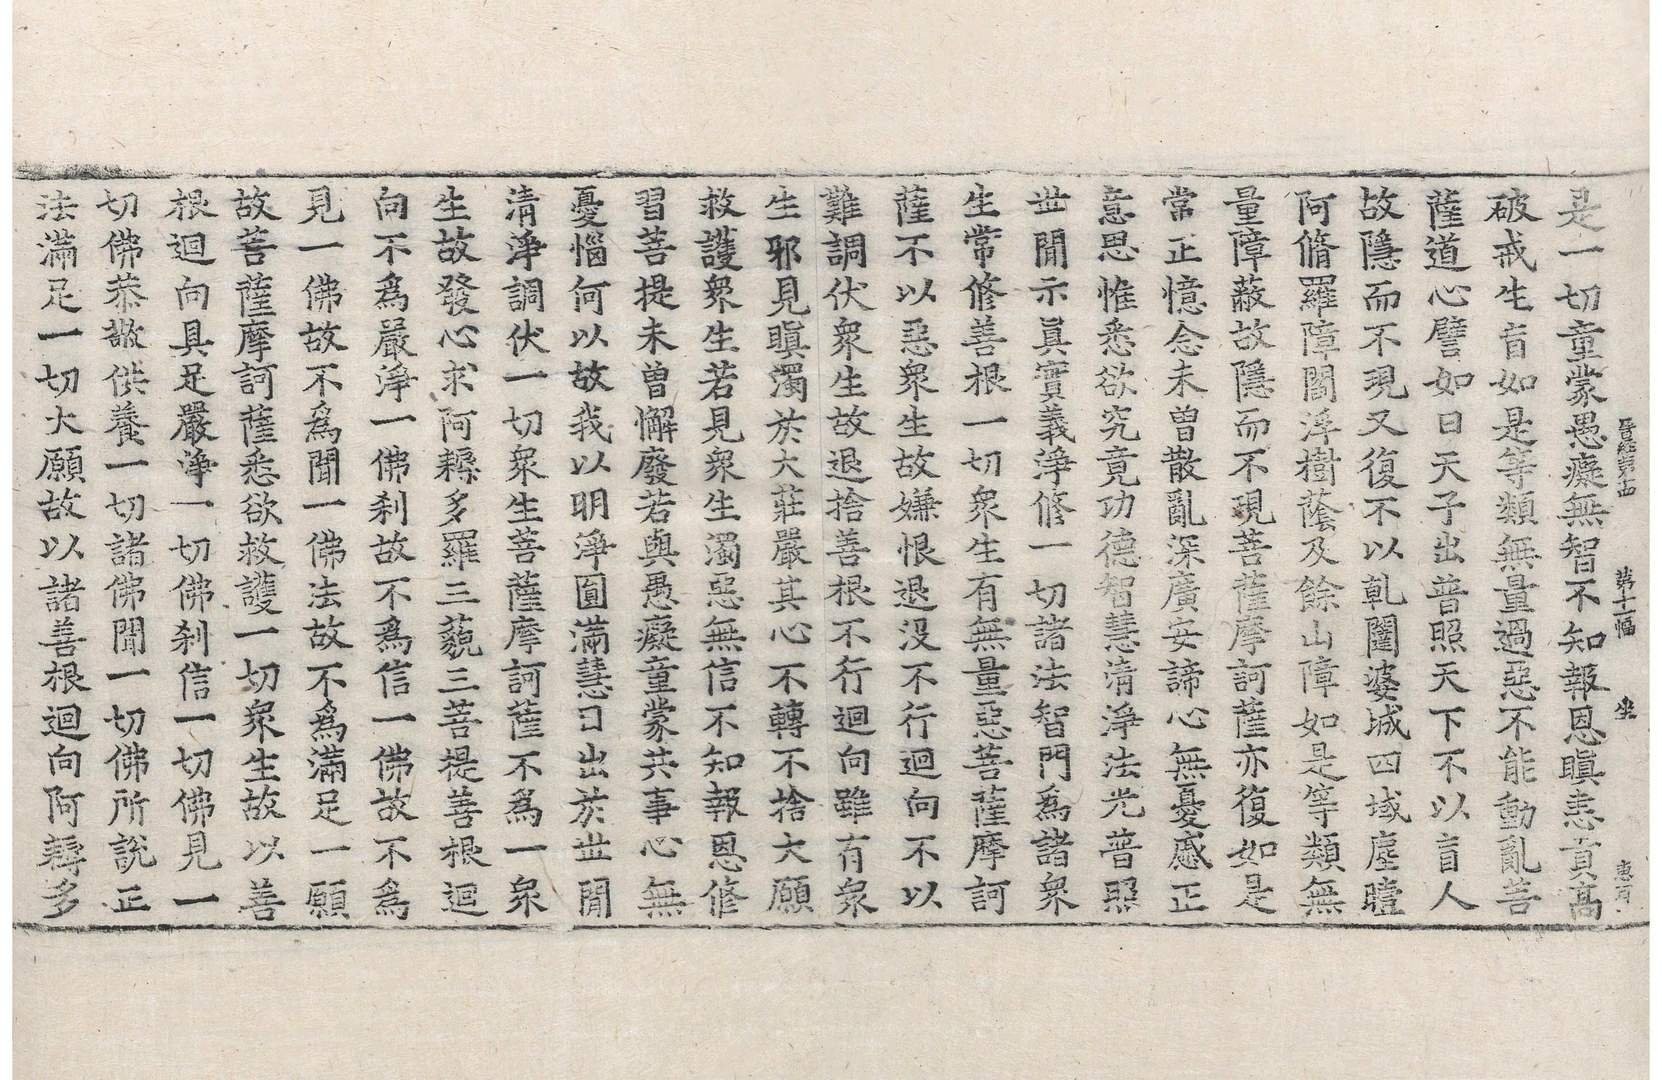 晉經第十四 第十一幅 坐 惠
是一切童蒙愚癡無智不知報恩瞋恚貢高
破戒生盲如是等類無量過惡不能動亂菩
薩道心譬如日天子出普照天下不以盲人
故隱而不現又復不以乹闥婆城四域塵曀
阿脩羅障閻浮樹蔭及餘山障如是等類無
量障蔽故隱而不現菩薩摩訶薩亦復如是
常正憶念未曽散亂深廣安諦心無憂慼正
意思惟悉欲究竟功德智慧清淨法光普照
丗閒示真實義淨修一切諸法智門爲諸衆
生常修善根一切衆生有無量惡菩薩摩訶
薩不以惡衆生故嫌恨退没不行迴向不以
難調伏衆生故退捨善根不行迴向雖有衆
生邪見瞋濁於大莊嚴其心不轉不捨大願
救護衆生若見衆生濁惡無信不知報恩修
習菩提未曽懈廢若與愚癡童蒙共事心無
憂惱何以故我以明淨圓滿慧日出於丗閒
清淨調伏一切衆生菩薩摩訶薩不爲一衆
生故發心求阿耨多羅三藐三菩提善根迴
向不爲嚴淨一佛刹故不爲信一佛故不爲
見一佛故不爲聞一佛法故不爲滿足一願
故菩薩摩訶薩悉欲救護一切衆生故以善
根迴向具足嚴淨一切佛刹信一切佛見一
切佛恭敬供養一切諸佛聞一切佛所說正
法滿足一切大願故以諸善根迴向阿耨多